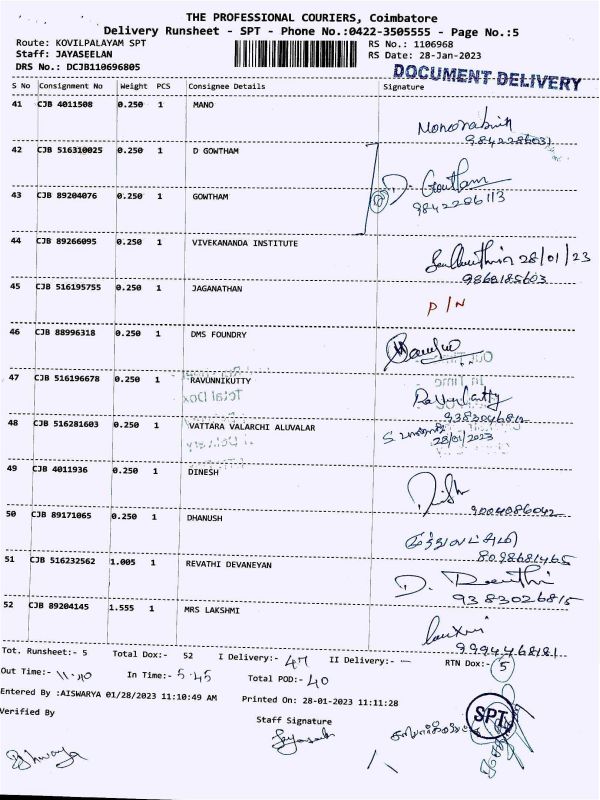 THE PROFESSIONAL COURIERS, Coimbatore
Delivery Runsheet - SPT - Phone No.:0422-3505555 - Page No.:5
Route: KOVILPALAYAM SPT RS No.: 1106968
Staff: JAYASEELAN RS Date: 28-Jan-2023
DRS No.: DCJB110696805
DOCUMENT DELIVERY
S No Consignment No Weight PCS Consignee Details Signature
41 CJB 4011508 0.250 1 MANO
9842286031
42 CJB 516310025 0.250 1 D GOWTHAM
D. Gowtham
43 CJB 89204076 0.250 1 GOWTHAM
9842286113
44 CJB 89266095 0.250 1 VIVEKANANDA INSTITUTE
28/01/23
45 CJB 516195755 0.250 1 JAGANATHAN
P/N
46 CJB 88996318 0.250 1 DMS FOUNDRY
Out Time
In Time
47 CJB 516196678 0.250 1 RAVUNNIKUTTY
Total Dox
48 CJB 516281603 0.250 1 VATTARA VALARCHI ALUVALAR
28/01/2023
49 CJB 4011936 0.250 1 DINESH
9004086042
50 CJB 89171065 0.250 1 DHANUSH
8098681465
51 CJB 516232562 1.005 1 REVATHI DEVANEYAN
9383026815
52 CJB 89204145 1.555 1 MRS LAKSHMI
9994468181
Tot. Runsheet:- 5 Total Dox:- 52 I Delivery:- 47 II Delivery:- — RTN Dox:- 5
Out Time:- 11.40 In Time:- 5.45 Total POD:- 40
Entered By :AISWARYA 01/28/2023 11:10:49 AM Printed On: 28-01-2023 11:11:28
Verified By Staff Signature
SPT